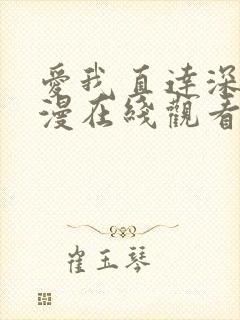 愛我直達深
漫在綫觀看
崔玉琴